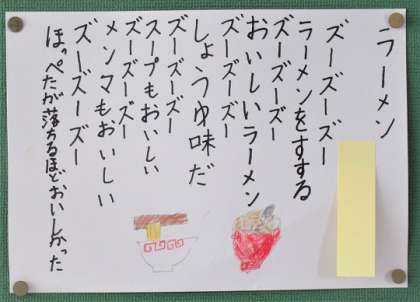 ラーメン
ズーズーズー
ラーメンをすする
ズーズーズー
おいしいラーメン
ズーズーズー
しょうゆ味だ
ズーズーズー
スープもおいしい
ズーズーズー
メンマもおいしい
ズーズーズー
ほっぺたが落ちるほどおいしかった